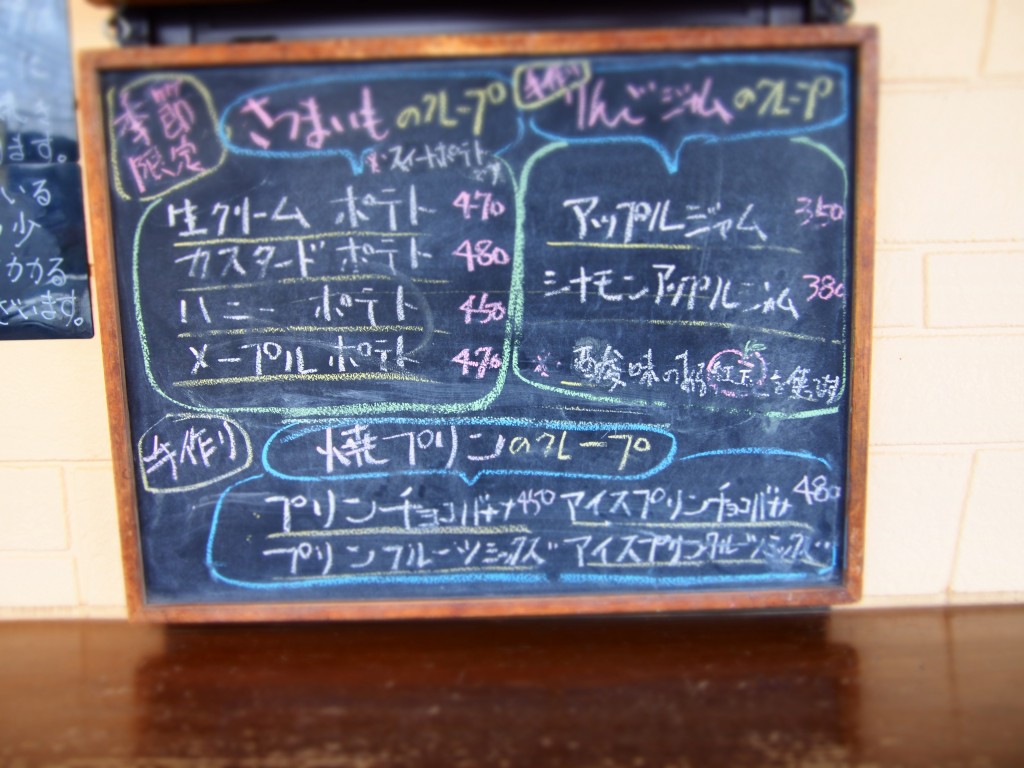 季節
限定
さつまいものクレープ
※スイートポテト
です
生クリーム ポテト 470
カスタード ポテト 480
ハニー ポテト 450
メープルポテト 470
手作り
りんごジャムのクレープ
アップルジャム 350
シナモンアップルジャム 380
※酸味の
紅玉
手作り
焼プリンのクレープ
プリンチョコバナナ450 アイスプリンチョコバナナ 480
プリンフルーツミックス 〃 アイスプリンフルーツミックス 〃
ます。
いる
少
カカる
ざいます。